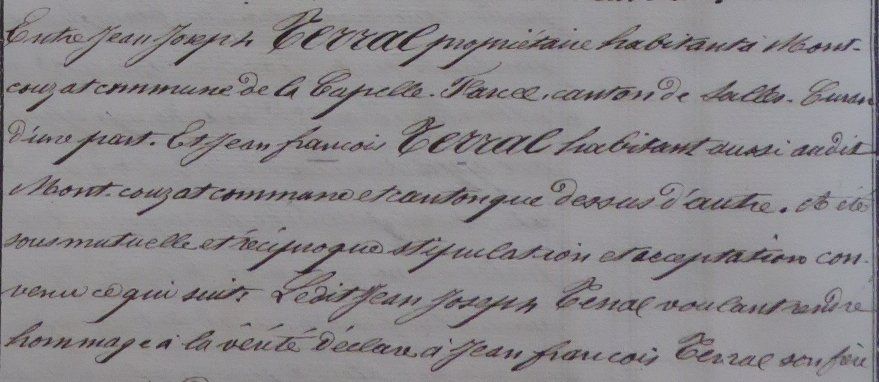 Entre Jean Joseph Terral propriétaire habitant à Mont-
couzat commune de la Capelle-Farcel, canton de Salles-Curan
d'une part. Et Jean francois Terral habitant aussi audit
Mont-couzat commune et canton que dessus d'autre. A été
sous mutuelle et réciproque stipulation et acceptation con-
venu ce qui suit. Ledit Jean Joseph Terral voulant rendre
hommage à la vérité déclare à Jean francois Terral son frère